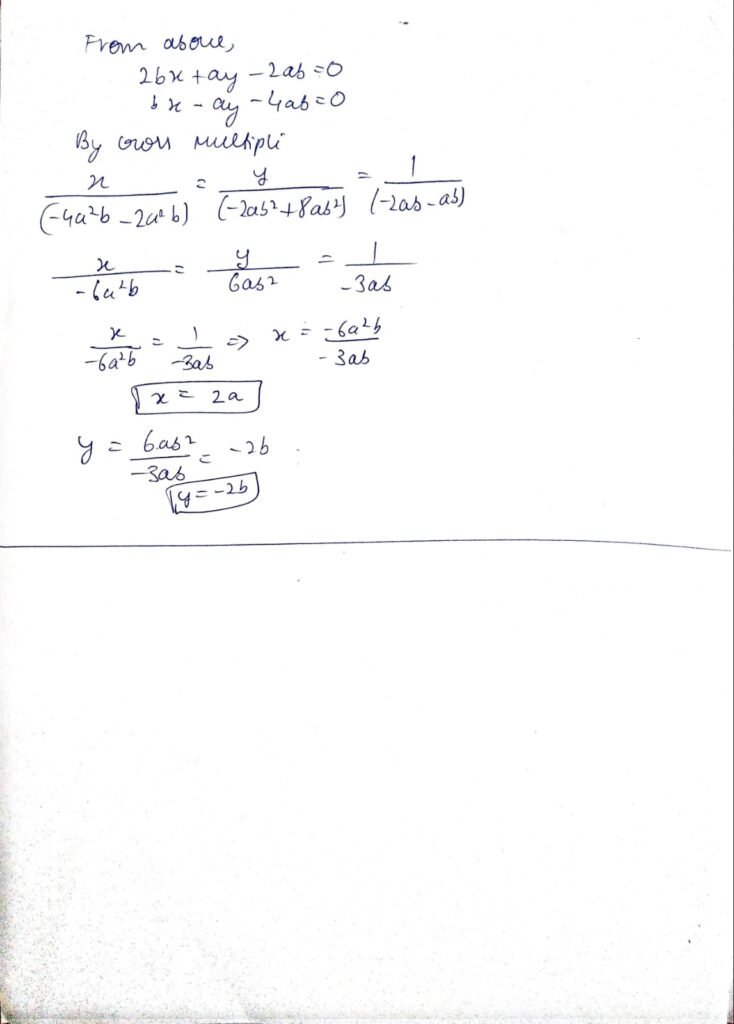 From above,
2bx + ay - 2ab = 0
bx - ay - 4ab = 0
By cross multipli
x/(-4a²b - 2a²b) = y/(-2ab² + 8ab²) = 1/(-2ab - ab)
x/-6a²b = y/6ab² = 1/-3ab
x/-6a²b = 1/-3ab ⇒ x = -6a²b/-3ab
x = 2a
y = 6ab²/-3ab = -2b
y = -2b